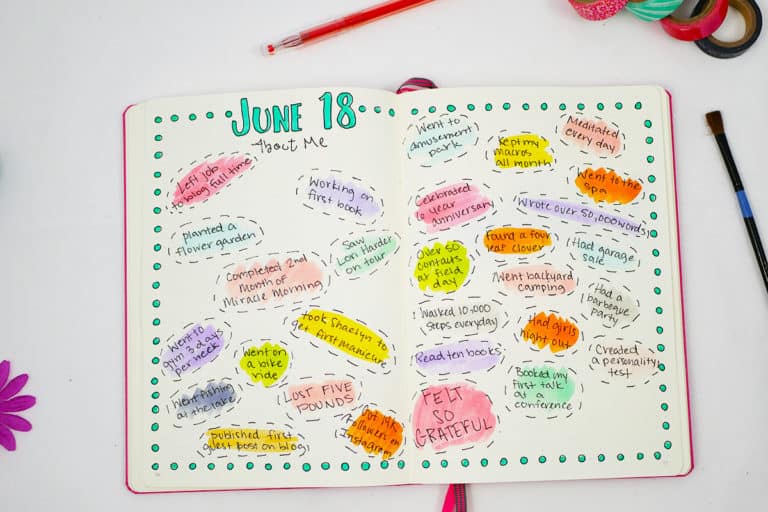 JUNE 18
About Me
Left job
to blog full time
Working on
first book
planted a
flower garden
Saw
Lori Harder
on tour
Completed 2nd
Month of
Miracle Morning
Went to
gym 3 days
per week
Went on a
bike
ride
took Shaelyn to
get first manicure
Went fishing
at the lake
LOST FIVE
POUNDS
Got 14K
followers on
Instagram
published first
guest post on blog
Went to
amusement
park
Kept my
macros
all month
Meditated
every day
Celebrated
10 year
anniversary
Went to the
spa
Wrote over 50,000 words
found a four
leaf clover
Had garage
sale
Over 50
contacts
at field
day
Went backyard
camping
Had a
barbeque
party
Walked 10,000
steps everyday
Had girls
night out
Read ten books
Created
a personality
test
Booked my
first talk
at a
conference
FELT
SO
GRATEFUL